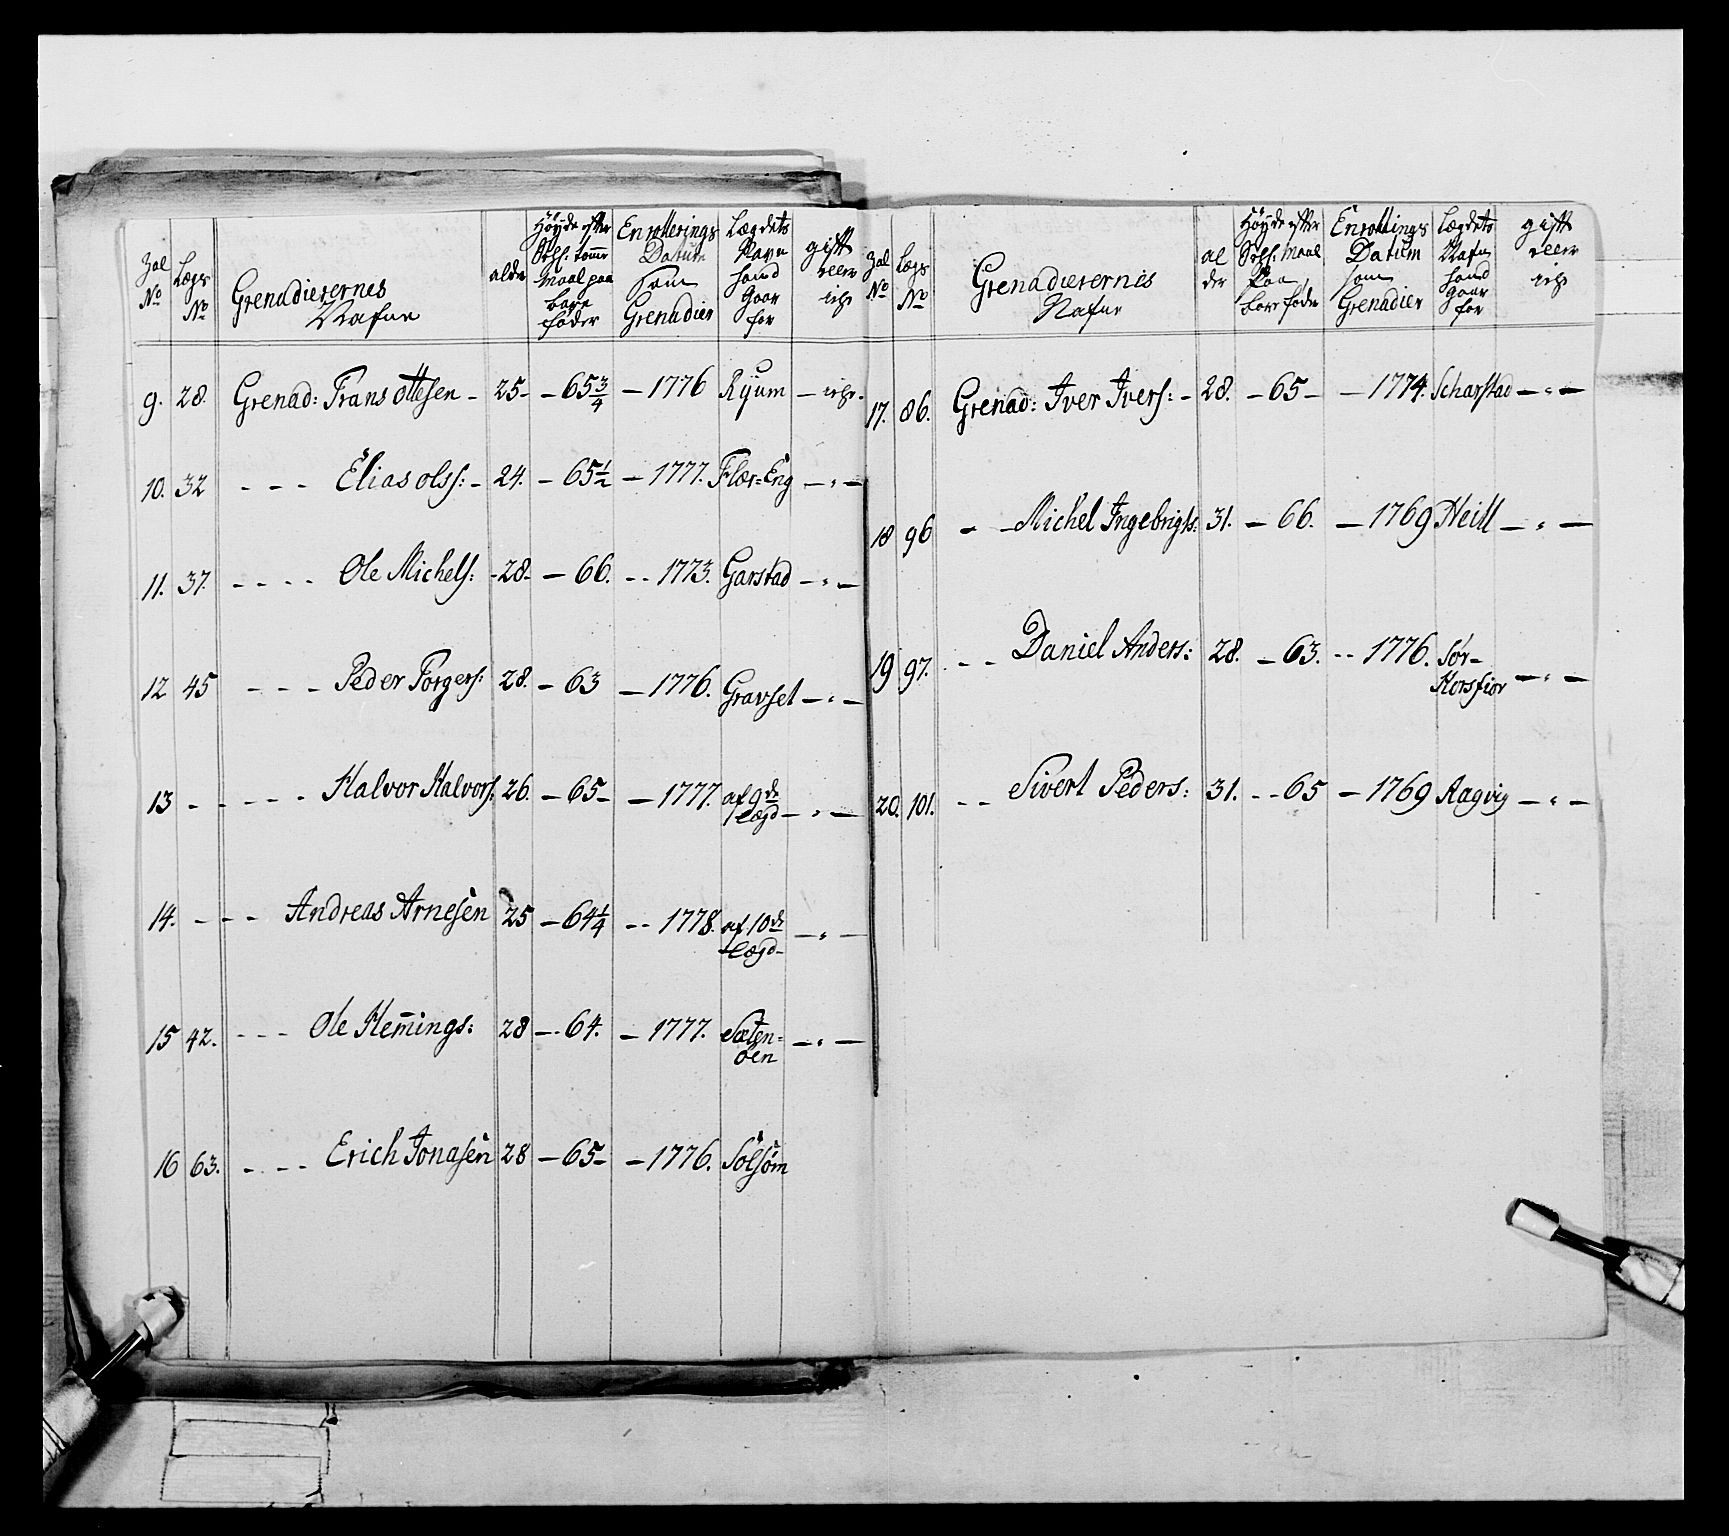 Zal No
Lægs No
Grenadierernes Nafne
alder
Höyde efter
Maal paa
bare föder
Enrollerings Datum som Grenadier
Lægdets Navn hand gaar for
gift eller iche
9. 28. Grenad: Frans Ottesen - 25 - - 65 3/4 - 1776 Ryum - iche -
10. 32 - - - Elias Olss: - 24. - 65 1/2 - 1777. Flær=Eng - " -
11. 37. - - - - Ole Michels: - 28 - - 66. - - 1773. Garstad - " -
12 45 - - - - Peder Torgers: 28. - 63 - 1776. Gravset - " -
13 - - - - - Halvor Halvors: 26. - 65 - - 1777. af 9de
Lægd - " -
14. - - - Andreas Arnesen 25 - 64 1/4 - - 1778. af 10de
Lægd - - " -
15 42. - - - Ole Hem̄ings: 28 - - 64. - 1777. Sæten=
öen - " -
16 63. - - - Erich Jonasen 28 - 65 - - 1776. Sölsöm
Zal No
Lægs No
Grenadierernes Nafne
alder
Höyde efter
Maal
Paa
bare föder
Enrollings Datum som Grenadier
Lægdets Nafn hand gaar for
gift eller iche
17. 86. Grenad: Iver Ivers: - 28. - 65 - - 1774. Scharstad - " -
18 96 - - Michel Ingebrigts: 31. - 66. - 1769 Heill - " -
19 97. - - Daniel Anders: 28. - 63. - - 1776. Sör-
Korsfior - " -
20. 101. - - Sivert Peders: 31. - - 65 - 1769 Ragvig - " -